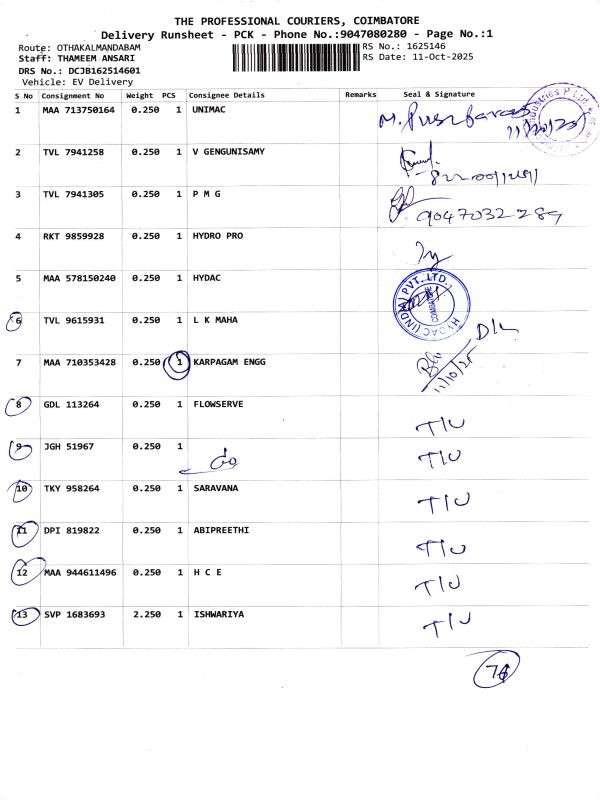 THE PROFESSIONAL COURIERS, COIMBATORE
Delivery Runsheet - PCK - Phone No.:9047080280 - Page No.:1
Route: OTHAKALMANDABAM
RS No.: 1625146
Staff: THAMEEM ANSARI
RS Date: 11-Oct-2025
DRS No.: DCJB162514601
Vehicle: EV Delivery
S No Consignment No Weight PCS Consignee Details Remarks Seal & Signature
1 MAA 713750164 0.250 1 UNIMAC
11/10/25
2 TVL 7941258 0.250 1 V GENGUNISAMY
3 TVL 7941305 0.250 1 P M G
9047032289
4 RKT 9859928 0.250 1 HYDRO PRO
5 MAA 578150240 0.250 1 HYDAC
HYDAC (INDIA) PVT. LTD.
COIMBATORE
6 TVL 9615931 0.250 1 L K MAHA D/L
7 MAA 710353428 0.250 1 KARPAGAM ENGG
11/10/25
8 GDL 113264 0.250 1 FLOWSERVE T/U
9 JGH 51967 0.250 1 T/U
10 TKY 958264 0.250 1 SARAVANA T/U
11 DPI 819822 0.250 1 ABIPREETHI T/U
12 MAA 944611496 0.250 1 H C E T/U
13 SVP 1683693 2.250 1 ISHWARIYA T/U